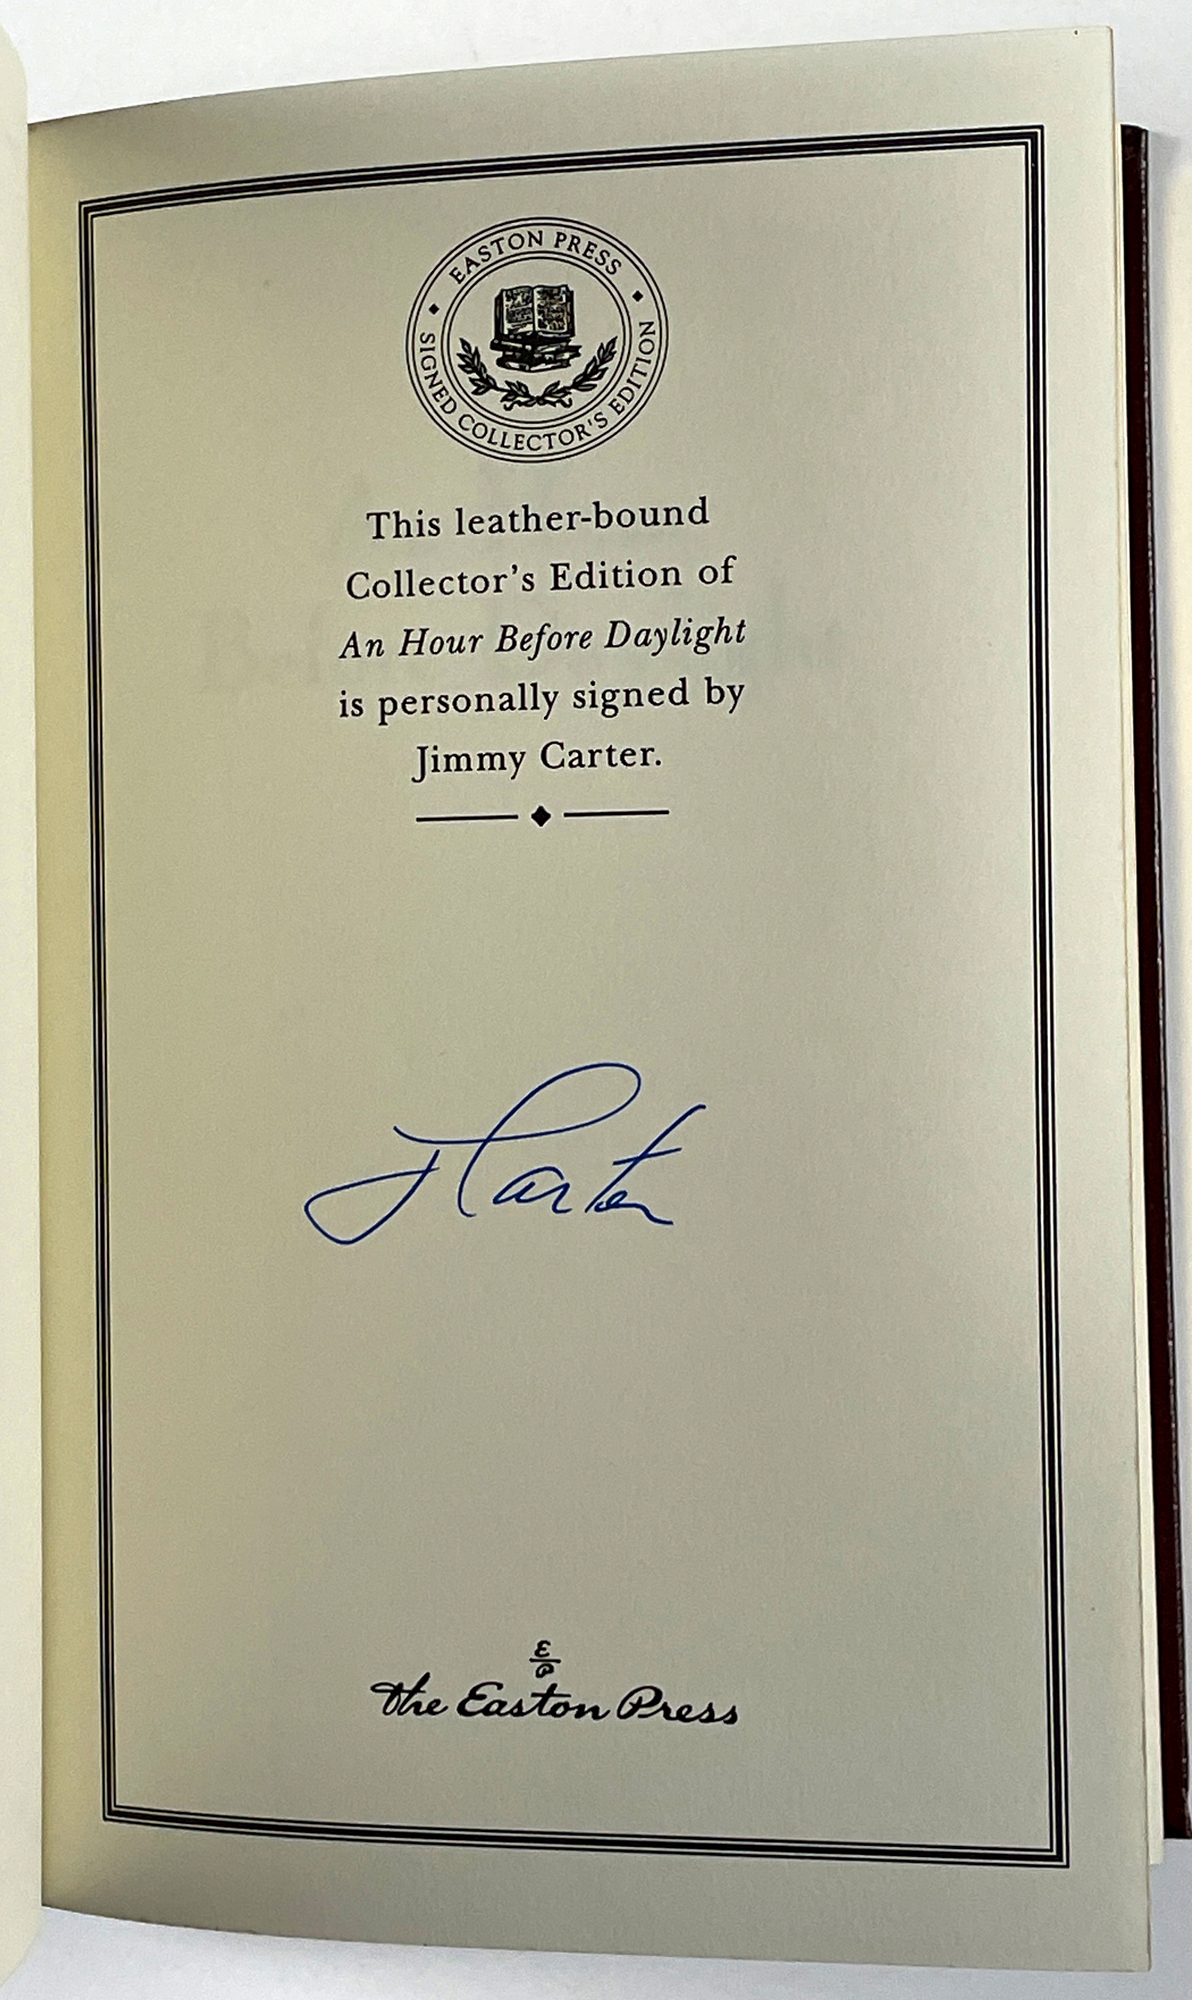 EASTON PRESS
SIGNED COLLECTOR'S EDITION
This leather-bound
Collector's Edition of
An Hour Before Daylight
is personally signed by
Jimmy Carter.
J Carter
E
P
The Easton Press